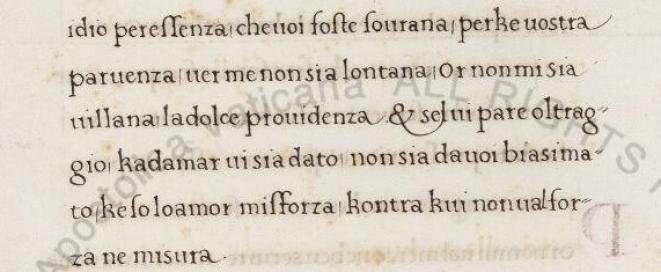 idio peressenza/ cheuoi foste sourana/ perke uostra
paruenza/ uer me non sia lontana/ Or non mi sia
uillana/ la dolce prouidenza & selui pare oltrag-
gio/ kadamar ui sia dato/ non sia dauoi biasima-
to/ ke solo amor misforza/ kontra kui non ual for-
za ne misura.
Apostolica Vaticana ALL RIGHTS